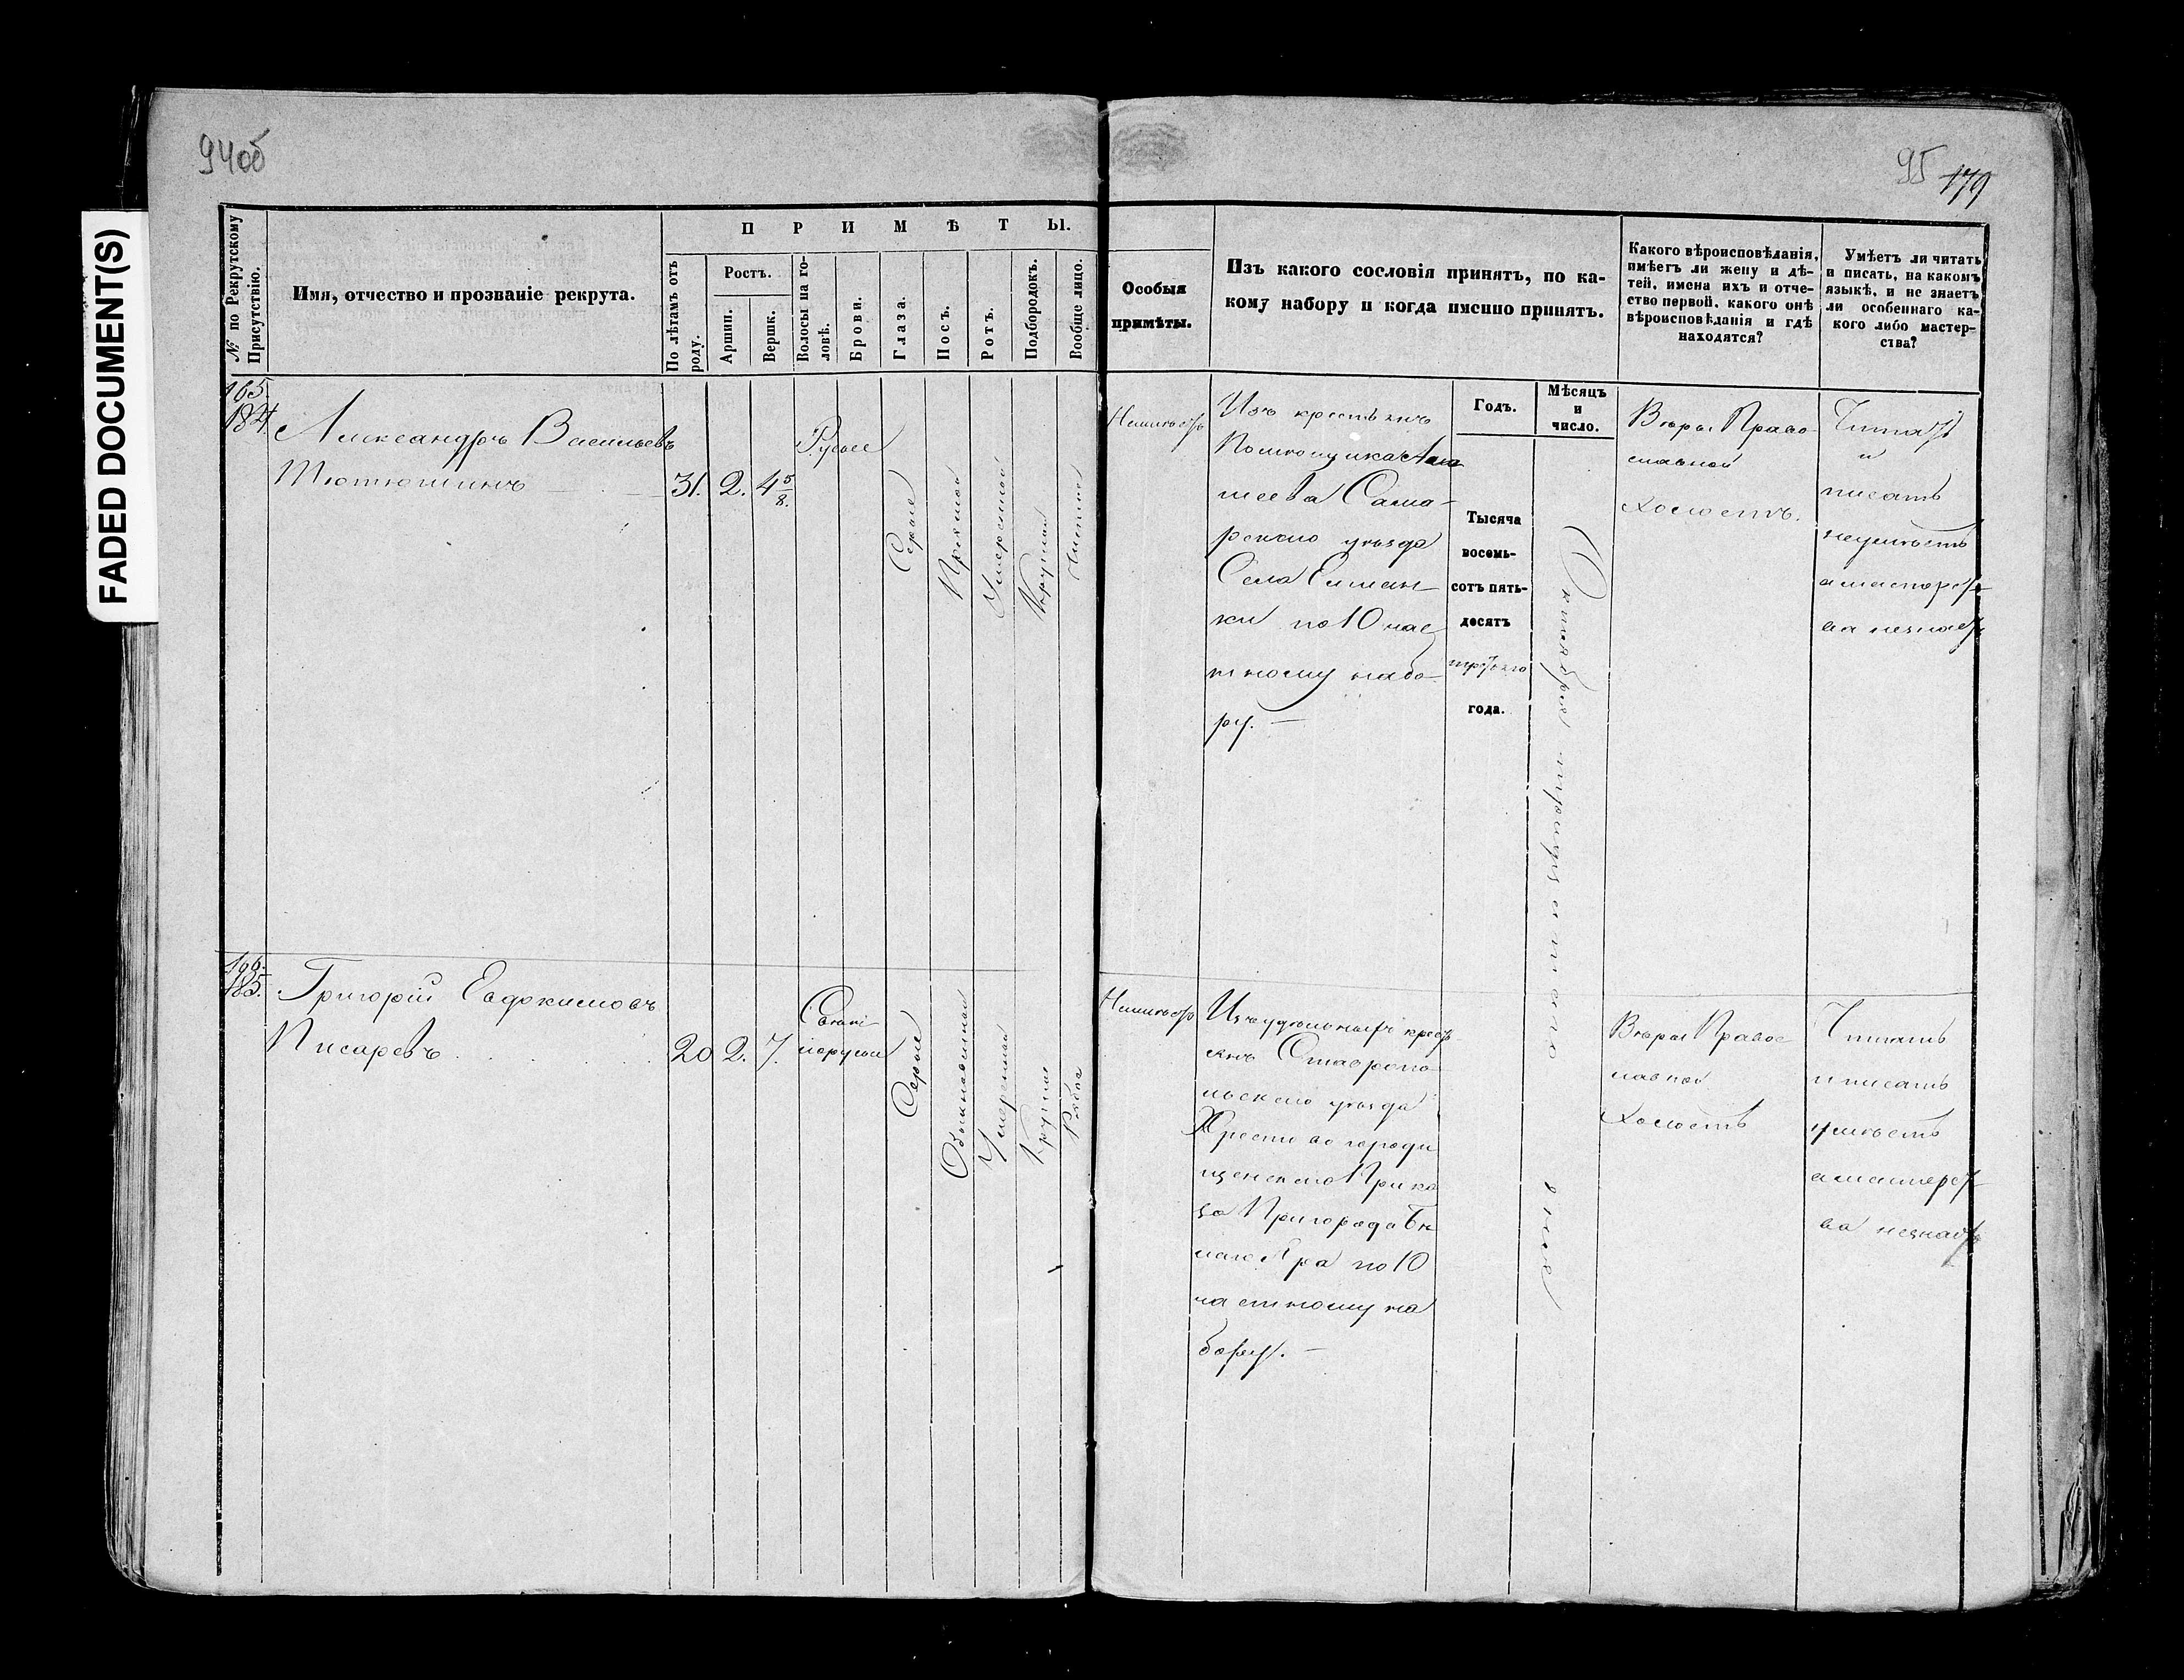 94об
95 179
FADED DOCUMENT(S)
№ по Рекрутскому Присутствію.
Имя, отчество и прозваніе рекрута.
ПРИМѢТЫ.
По лѣтамъ отъ роду.
Ростъ.
Аршин.
Вершк.
Волосы на головѣ.
Брови.
Глаза.
Носъ.
Ротъ.
Подбородокъ.
Вообще лицо.
Особыя
примѣты.
Изъ какого сословія принятъ, по ка-
кому набору и когда именно принятъ.
Какого вѣроисповѣданія,
имѣетъ ли жену и дѣ-
тей, имена ихъ и отче-
ство первой, какого онѣ
вѣроисповѣданія и гдѣ
находятся?
Умѣетъ ли читать
и писать, на какомъ
языкѣ, и не знаетъ
ли особеннаго ка-
кого либо мастер-
ства?
Годъ.
Мѣсяцъ
и
число.
165.
184.
Александръ Васильевъ
Тютюшинъ
31. 2. 4 5/8.
Русые
Серые
Прямой
Умеренной
Круглой
Чистое
Неимѣетъ
Изъ крестьянъ
Помѣщика
шеева Сама-
рскаго уѣзда
Села
ки по 10 час
тному набо-
ру. —
Тысяча
восемь-
сотъ пять-
десятъ
третьяго
года.
Октября тридцатаго дня
Вѣры Право
славной
Холостъ.
Читать
и
писать
неумѣетъ
а мастерст
ва незнаетъ
166.
185.
Григорій Евдокимовъ
Писаревъ
20 2. 7.
Светло
русые
Серые
Обыкновенной
Умеренной
Круглой
Рябое
Неимѣетъ
Изъ удѣльныхъ кресть
янъ Ставропо
льскаго уѣзда
Хрестовогороди
щенскаго Прика
за Пригорода Бѣ
лаго Яра по 10
частному на
бору. —
Вѣры Правос
лавной
Холостъ
Читать
и писать
умѣетъ
а мастерст
ва незнаетъ